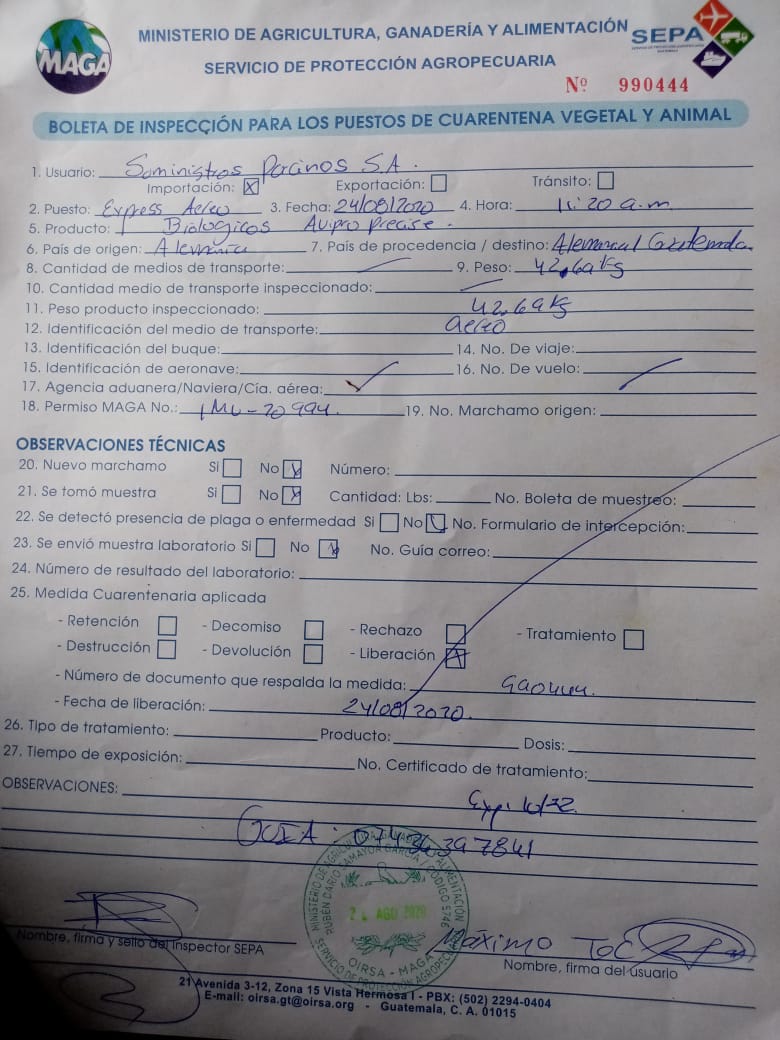 MAGA
MINISTERIO DE AGRICULTURA, GANADERÍA Y ALIMENTACIÓN
SERVICIO DE PROTECCIÓN AGROPECUARIA
SEPA
Nº 990444
BOLETA DE INSPECÇIÓN PARA LOS PUESTOS DE CUARENTENA VEGETAL Y ANIMAL
1. Usuario: Suministros Porcinos S.A.
Importación: X Exportación: Tránsito:
2. Puesto: Express Aereo 3. Fecha: 24/08/2020 4. Hora: 11:20 a.m
5. Producto: Biologicos Avipro Precise.
6. País de origen: Alemania 7. País de procedencia / destino: Guatemala
8. Cantidad de medios de transporte: 9. Peso: 42.69 Kg
10. Cantidad medio de transporte inspeccionado:
11. Peso producto inspeccionado: 42.69 Kg
12. Identificación del medio de transporte: aereo
13. Identificación del buque: 14. No. De viaje:
15. Identificación de aeronave: 16. No. De vuelo:
17. Agencia aduanera/Naviera/Cía. aérea:
18. Permiso MAGA No.: 19. No. Marchamo origen:
OBSERVACIONES TÉCNICAS
20. Nuevo marchamo Si No Número:
21. Se tomó muestra Si No Cantidad: Lbs: No. Boleta de muestreo:
22. Se detectó presencia de plaga o enfermedad Si No No. Formulario de intercepción:
23. Se envió muestra laboratorio Si No No. Guía correo:
24. Número de resultado del laboratorio:
25. Medida Cuarentenaria aplicada
- Retención - Decomiso - Rechazo - Tratamiento
- Destrucción - Devolución - Liberación
- Número de documento que respalda la medida: 990444.
- Fecha de liberación: 24/08/2020.
26. Tipo de tratamiento: Producto: Dosis:
27. Tiempo de exposición: No. Certificado de tratamiento:
OBSERVACIONES:
GUIA:
MINISTERIO DE AGRICULTURA GANADERIA Y ALIMENTACIÓN
RUBÉN DARÍO CAMAYOR GARCÍA / CÓDIGO 5746
AGO 2020
OIRSA - MAGA
SERVICIO DE PROTECCIÓN AGROPECUARIA
Máximo Toc
Nombre, firma y sello del Inspector SEPA
Nombre, firma del usuario
21 Avenida 3-12, Zona 15 Vista Hermosa I - PBX: (502) 2294-0404
E-mail: oirsa.gt@oirsa.org - Guatemala, C. A. 01015